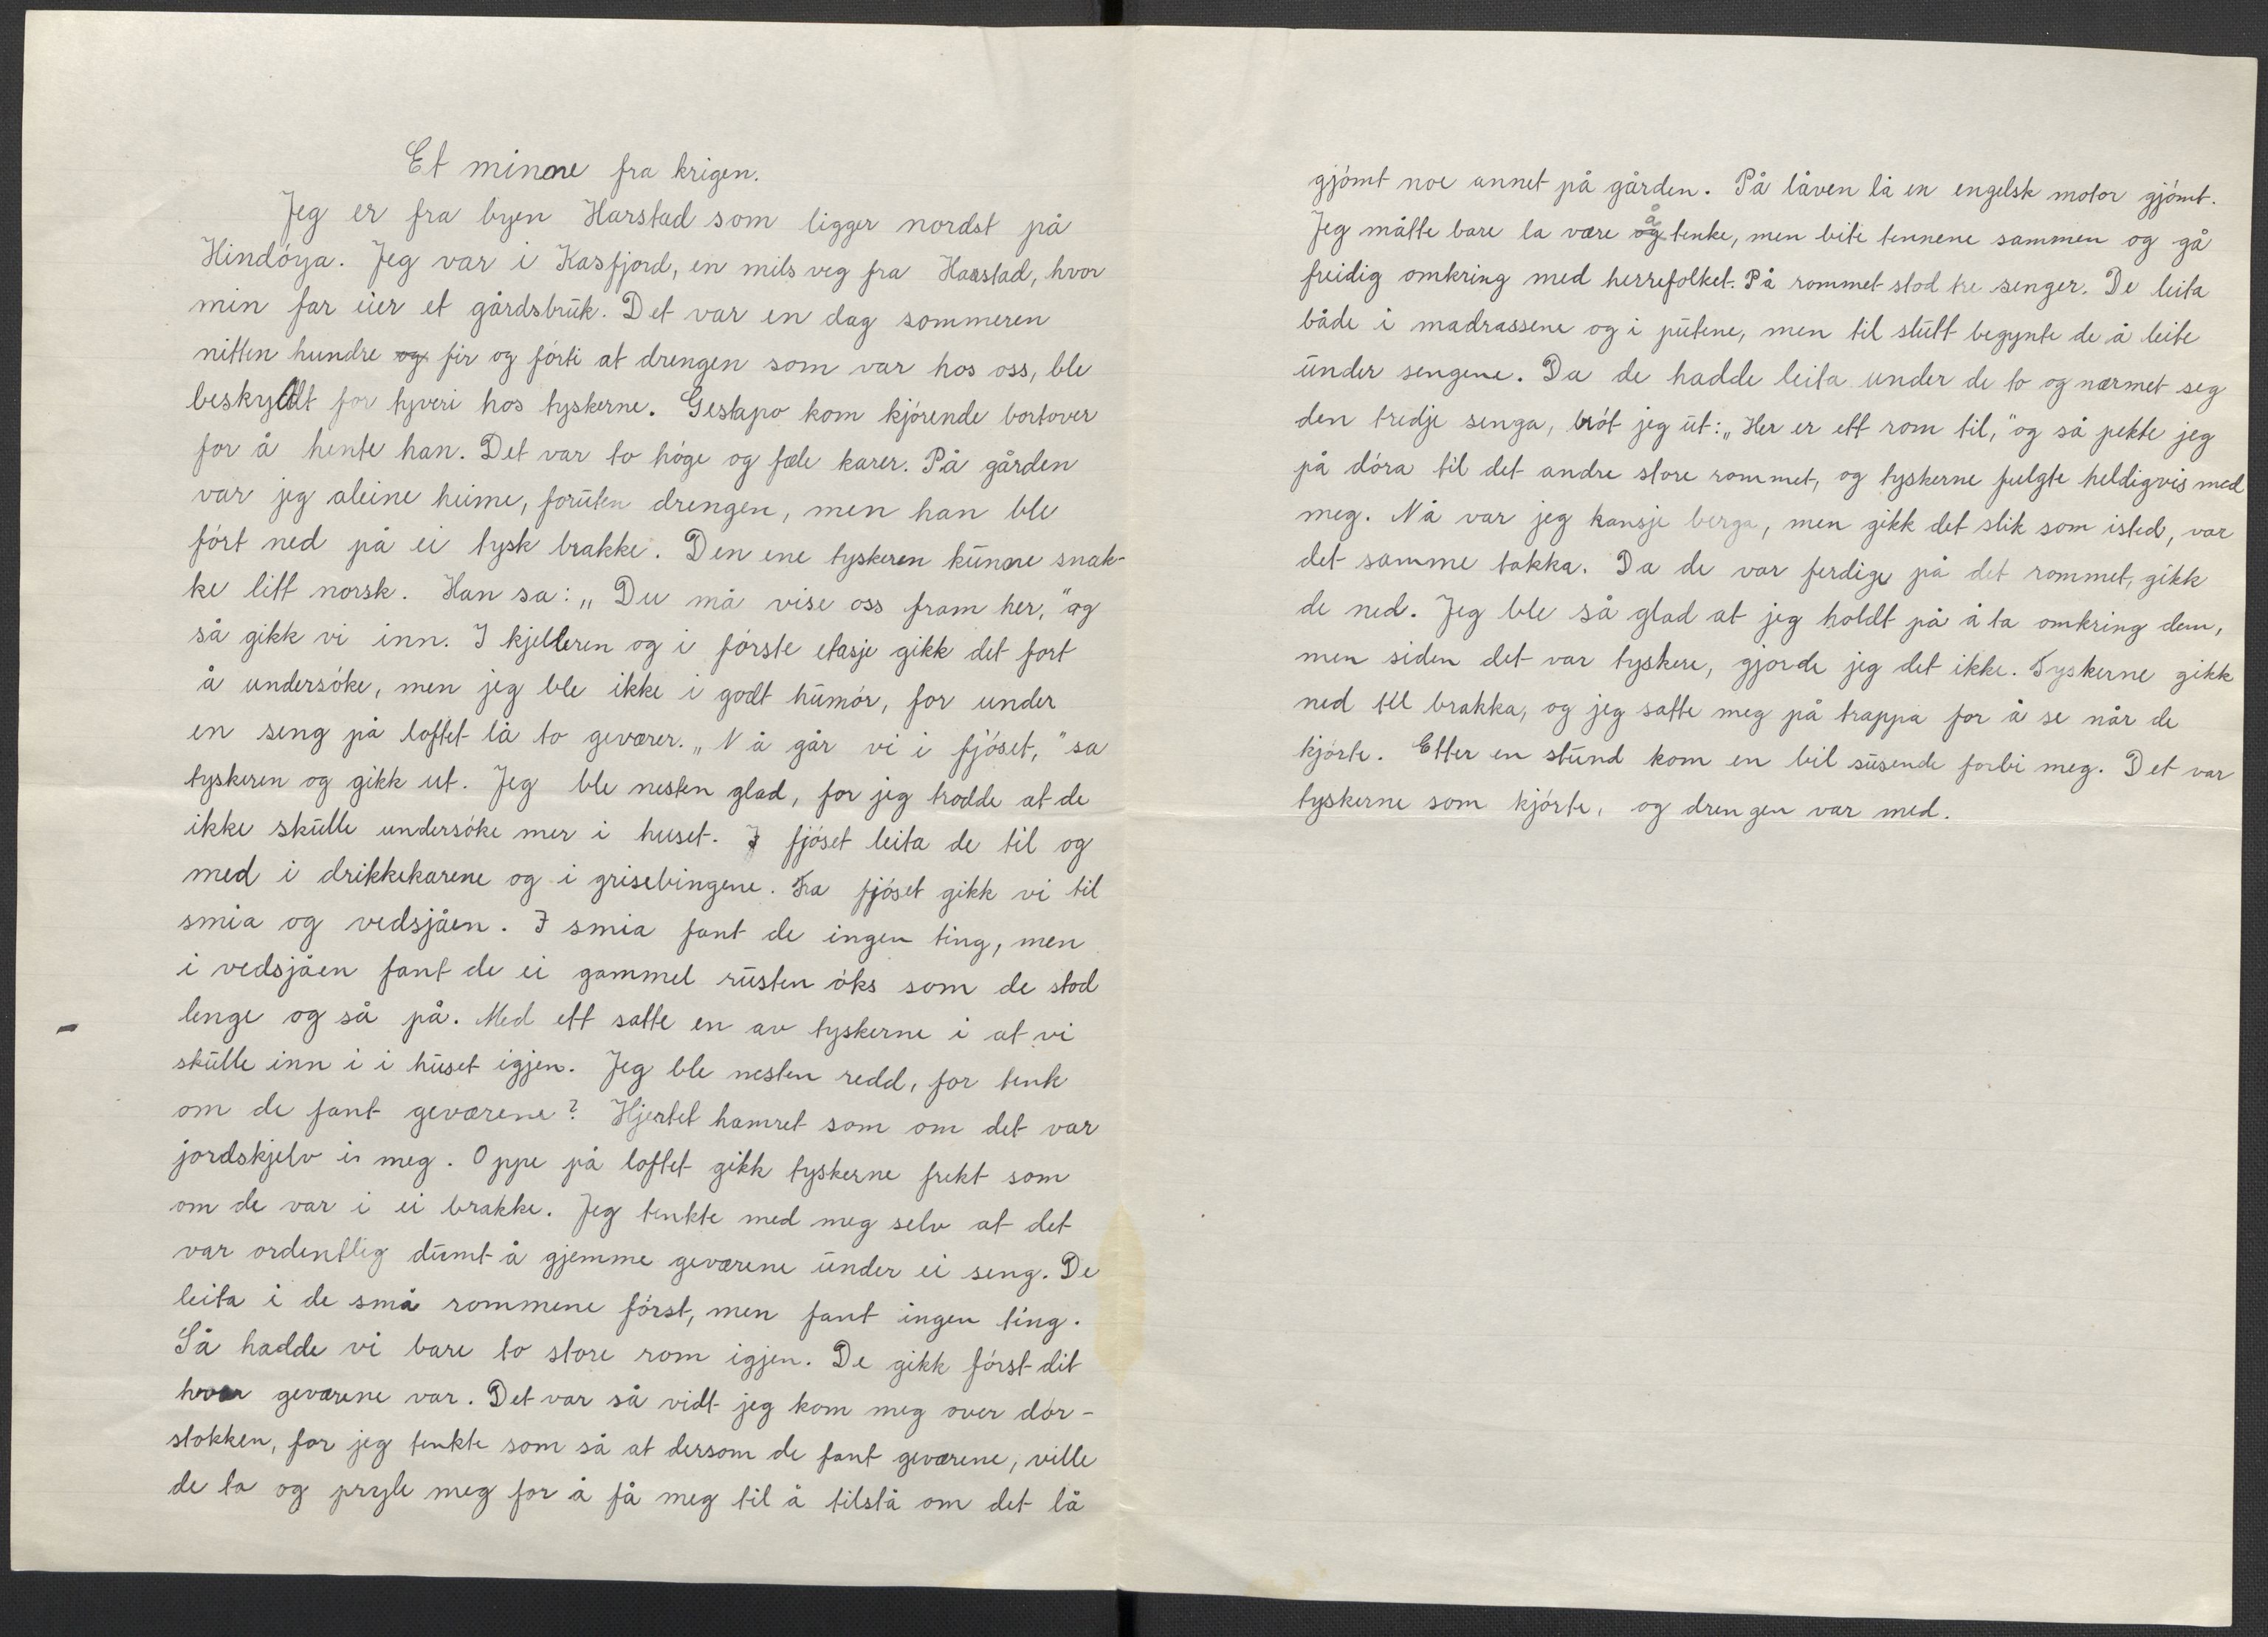 Et minne fra krigen.
Jeg er fra byen Harstad som ligger nordst på
Hindöya. Jeg var i Kasfjord, en mils veg fra Harstad, hvor
min far eier et gårdsbruk. Det var en dag sommeren
nitten hundre og fir og förti at drengen som var hos oss, ble
beskyldt for tyveri hos tyskerne. Gestapo kom kjörende bortover
for å hente han. Det var to höge og fæle karer. På gården
var jeg aleine heime, foruten drengen, men han ble
fört ned på ei tysk brakke. Den ene tyskeren kunne snak-
ke litt norsk. Han sa: „Du må vise oss fram her," og
så gikk vi inn. I kjelleren og i förste etasje gikk det fort
å undersöke, men jeg ble ikke i godt humör, for under
en seng på loftet lå to geværer. „Nå går vi i fjöset," sa
tyskeren og gikk ut. Jeg ble nesten glad, for jeg trodde at de
ikke skulle undersöke mer i huset. I fjöset leita de til og
med i drikkekarene og i grisebingene. Fra fjöset gikk vi til
smia og vedsjåen. I smia fant de ingen ting, men
i vedsjåen fant de ei gammel rusten öks som de stod
lenge og så på. Med ett satte en av tyskerne i at vi
skulle inn i i huset igjen. Jeg ble nesten redd, for tenk
om de fant geværene? Hjertet hamret som om det var
jordskjelv i meg. Oppe på loftet gikk tyskerne frekt som
om de var i ei brakke. Jeg tenkte med meg selv at det
var ordentlig dumt å gjemme geværene under ei seng. De
leita i de små rommene först, men fant ingen ting.
Så hadde vi bare to store rom igjen. De gikk först dit
hvor geværene var. Det var så vidt jeg kom meg over dör-
stokken, for jeg tenkte som så at dersom de fant geværene, ville
de ta og pryle meg for å få meg til å tilstå om det lå
gjömt noe annet på gården. På låven lå en engelsk motor gjömt.
Jeg måtte bare la være og å tenke, men bite tennene sammen og gå
freidig omkring med herrefolket. På rommet stod tre senger. De leita
både i madrassene og i putene, men til slutt begynte de å leite
under sengene. Da de hadde leita under de to og nærmet seg
den tredje senga, bröt jeg ut: „Her er ett rom til," og så pekte jeg
på döra til det andre store rommet, og tyskerne fulgte heldigvis med
meg. Nå var jeg kansje berga, men gikk det slik som isted, var
det samme takka. Da de var ferdige på det rommet, gikk
de ned. Jeg ble så glad at jeg holdt på å ta omkring dem,
men siden det var tyskere, gjorde jeg det ikke. Tyskerne gikk
ned til brakka, og jeg satte meg på trappa for å se når de
kjörte. Etter en stund kom en bil susende forbi meg. Det var
tyskerne som kjörte, og drengen var med.